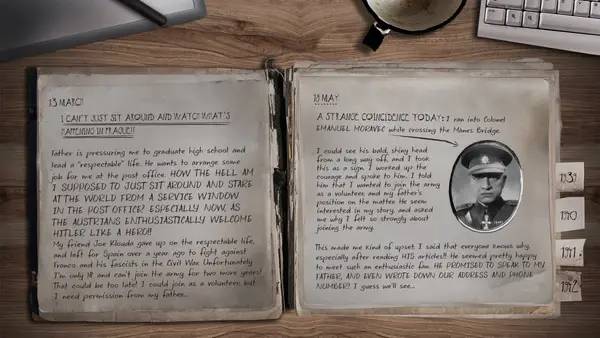 13 MARCH
I CAN'T JUST SIT AROUND AND WATCH WHAT'S
HAPPENING IN PRAGUE!!
Father is pressuring me to graduate high school and
lead a "respectable" life. He wants to arrange some
job for me at the post office. HOW THE HELL AM
I SUPPOSED TO JUST SIT AROUND AND STARE
AT THE WORLD FROM A SERVICE WINDOW
IN THE POST OFFICE? ESPECIALLY NOW, AS
THE AUSTRIANS ENTHUSIASTICALLY WELCOME
HITLER LIKE A HERO!!
My friend Joe Klouda gave up on the respectable life,
and left for Spain over a year ago to fight against
Franco and his fascists in the Civil War. Unfortunately
I'm only 18 and can't join the army for two more years!
That could be too late! I could join as a volunteer, but
I need permission from my father...
18 MAY
A STRANGE COINCIDENCE TODAY: I ran into Colonel
EMANUEL MORAVEC while crossing the Mánes Bridge.
I could see his bald, shiny head
from a long way off, and I took
this as a sign. I worked up the
courage and spoke to him. I told
him that I wanted to join the army
as a volunteer and my father's
position on the matter. He seem
interested in my story, and asked
me why I felt so strongly about
joining the army.
This made me kind of upset. I said that everyone knows why,
especially after reading HIS articles!! He seemed pretty happy
to meet such an enthusiastic fan. HE PROMISED TO SPEAK TO MY
FATHER, AND EVEN WROTE DOWN OUR ADDRESS AND PHONE
NUMBER!! I guess we'll see...
1939
1940
1941
1942